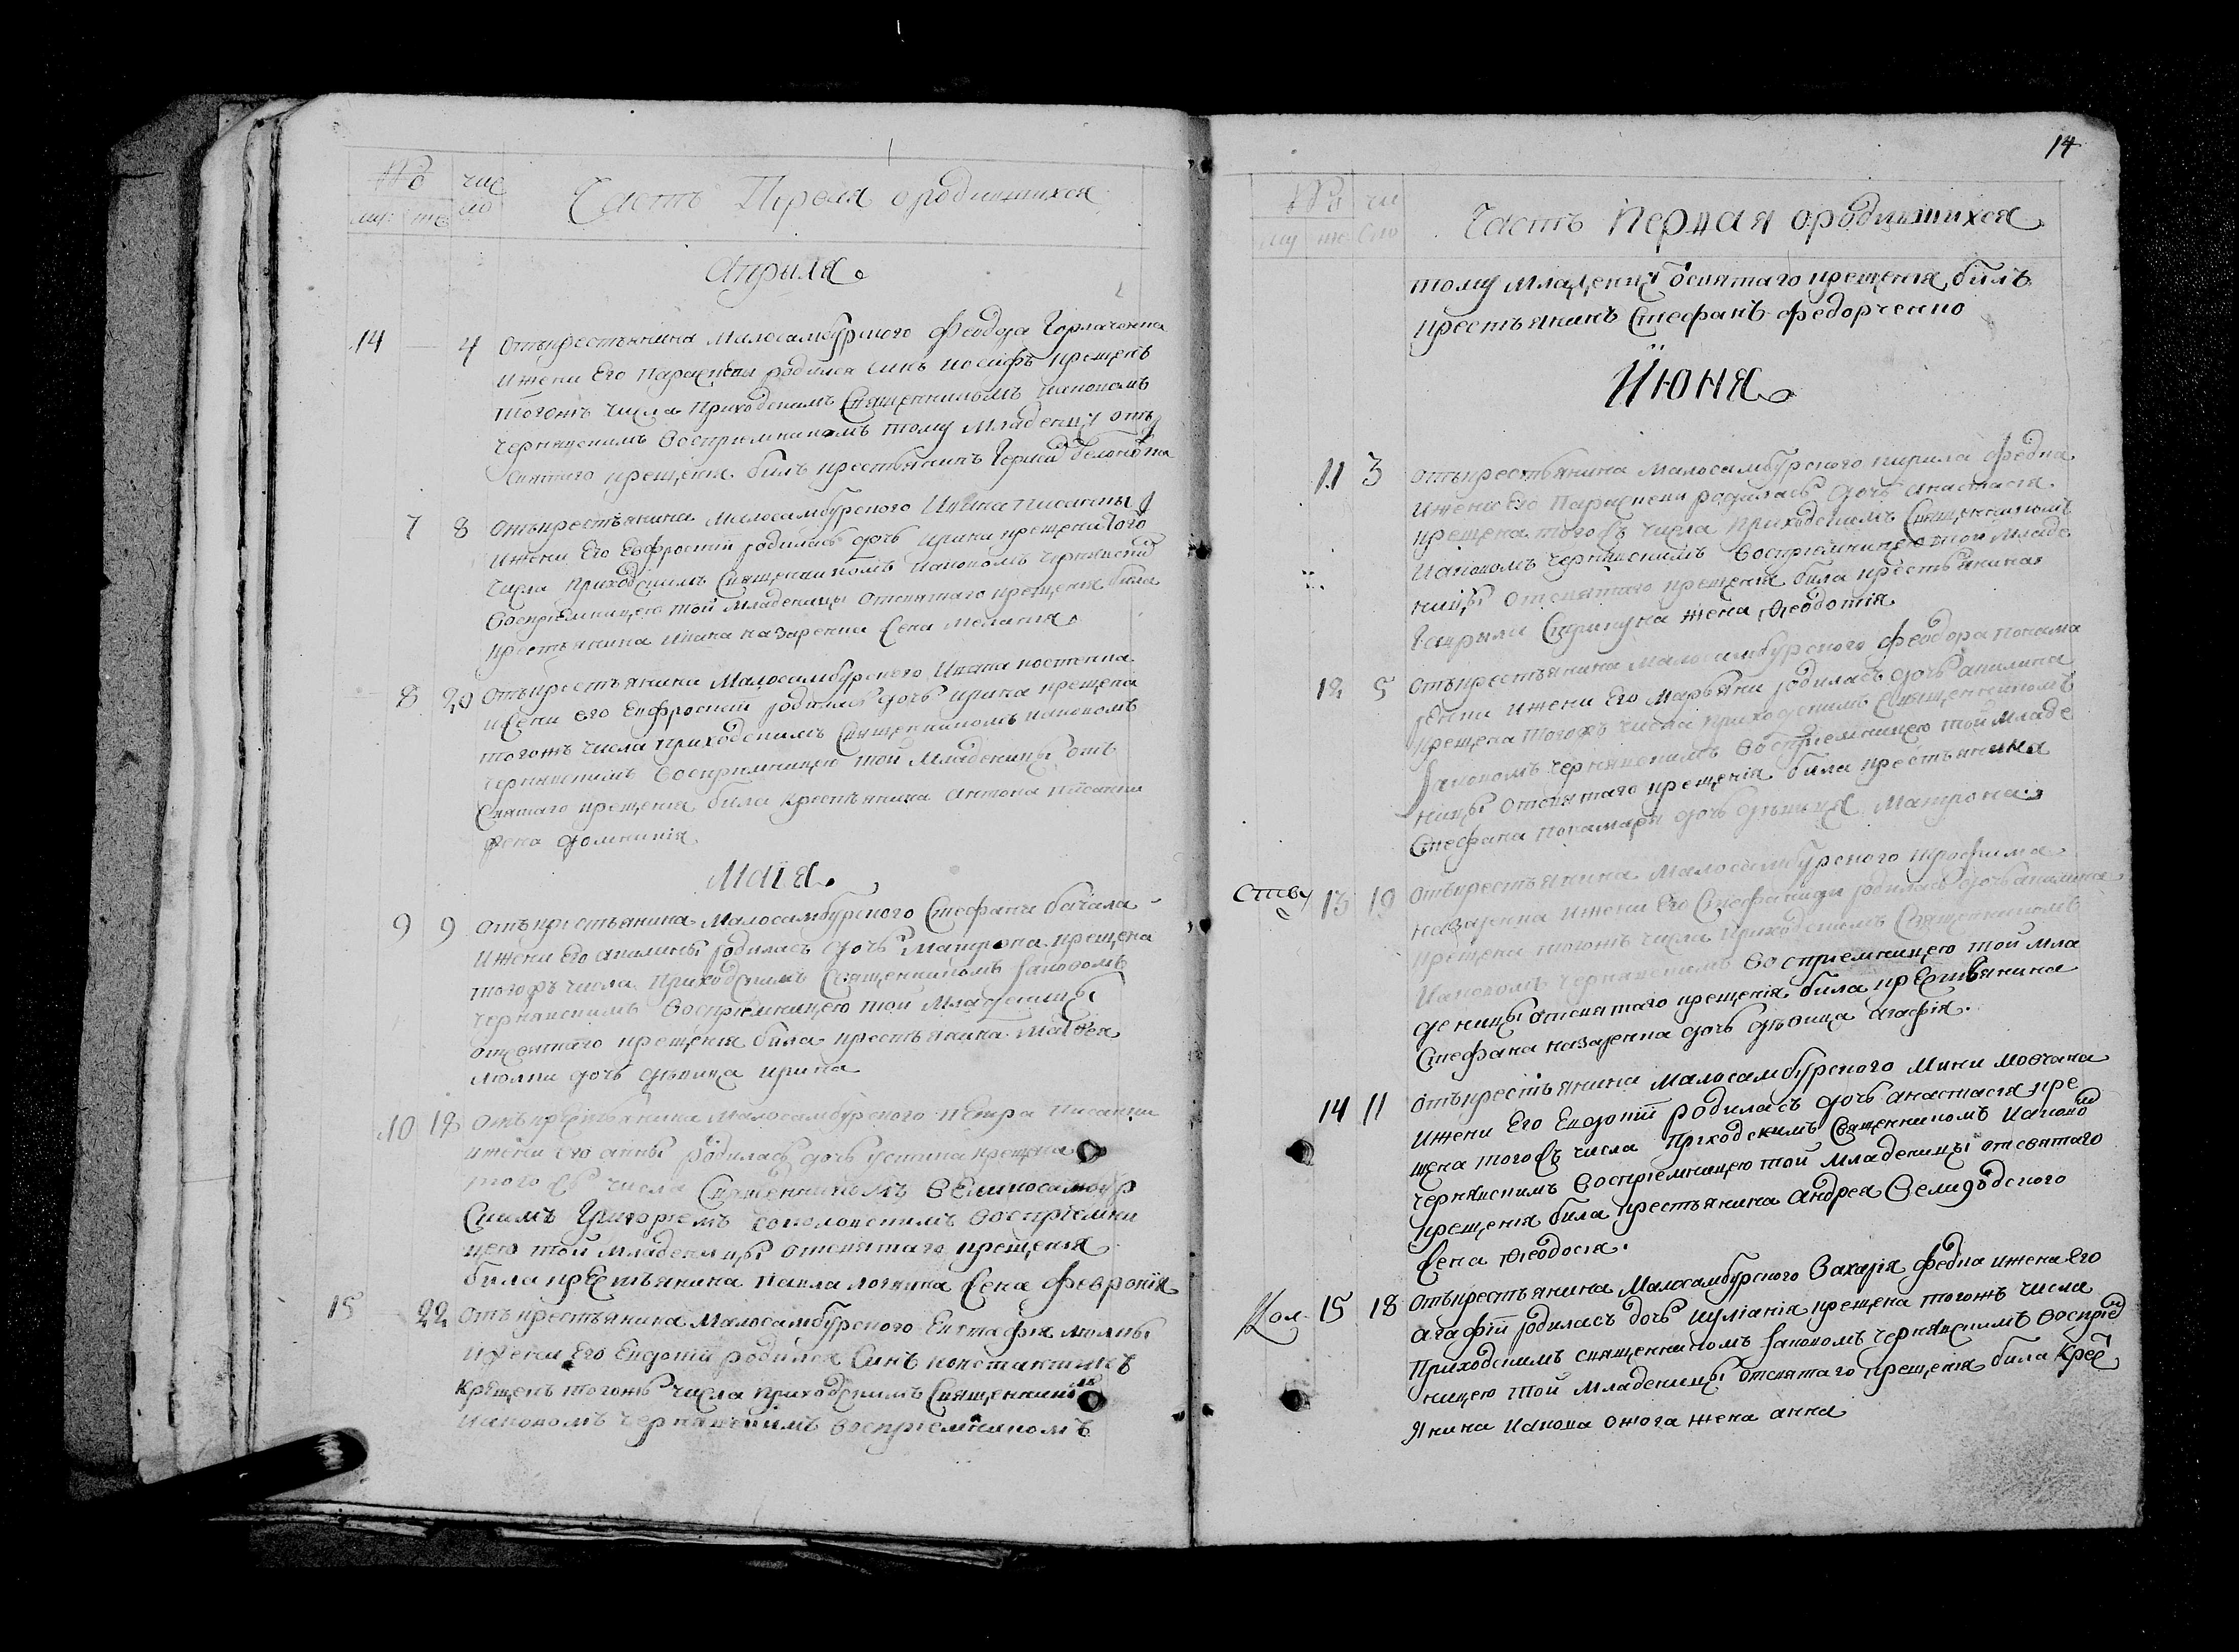 № чис
муж: же: ло
Часть Первая о родившихся
Априля
14 — 4 Открестьянина Малосамбурского Феодора
Ижени Его Параскевы родился синъ иосифъ крещенъ
тогожъ числа Приходскимъ Священникомъ Иакономъ
Чернявскимъ Восприемникомъ тому Младенцу отъ
святаго крещения билъ крестьянинъ
7 8 Открестьянина Малосамбурского Ивана писанки
Ижени Его Евфросинїи родилась дочь Ирина крещена того
числа Приходскимъ Священникомъ Иакономъ Чернявским
Восприемницею той Младеницы отсвятаго крещения била
крестьянина Ивана назаренка жена Мелания
8 20 Открестьянина Малосамбурского Ивана костенка
ижени его Евфросинїи родилась дочь Ирина крещена
тогожъ числа Приходскимъ Священникомъ Иакономъ
Чернявскимъ Восприемницею той Младеницы отъ
Святаго крещения била крестьянина Антона писанки
жена домникїя
Маїя
9 9 Открестьянина Малосамбурского Стефана бачала
Ижени Его акилины родилась дочь Матрона крещена
тогожъ числа Приходскимъ Священникомъ Иакономъ
Чернявскимъ Восприемницею той Младеницы
отсвятаго крещения била крестьянина Матвея
люлки дочь девица ирина
10 12 Открестьянина Малосамбурского Петра писанки
ижени его анны родилась дочь устина крещена
того жъ числа Священникомъ великосамбур
скимъ Григорїемъ восприемни
цею той Младеницы отсвятаго крещения
била крестьянина Павла логвина жена Феврония
15 22 Открестьянина Малосамбурского Евстафия люлки
ижени Его Евдокїи родился Синъ константинъ
крещенъ тогожъ числа приходскимъ Священникомъ
Иакономъ Чернявскимъ восприемникомъ
14
№ чи
му же сло
Часть Первая о родившихся
тому младенцу отсвятаго крещения билъ
крестьянинъ Стефанъ федорченко
Июня
11 3 Открестьянина Малосамбурского кирила Федка
Ижени Его Параскевы родилась дочь анастасия
крещена тогожъ числа Приходскимъ Священникомъ
Иакономъ Чернявскимъ Восприемницею той Младе
ницы отсвятаго крещения била крестьянина
Гаврила Стрикуна жена Феодотия
12 5 Открестьянина Малосамбурского Феодора понама
ренка ижени Его Марьяни родилась дочь акилина
крещена тогожъ числа приходскимъ Священникомъ
Иакономъ Чернявскимъ Восприемницею той младе
ницы отсвятаго крещения била крестьянина
Стефана понамаря дочь девица Матрона
13 10 Открестьянина Малосамбурского Трофима
назаренка ижени его Стефаниды родилась дочь акилина
крещена тогожъ числа приходскимъ Священникомъ
Иакономъ Чернявскимъ Восприемницею той мла
деницы отсвятаго крещения била крестьянина
Стефана назаренка дочь девица агафия.
14 11 Открестьянина Малосамбурского Мини мовчана
ижени Его Евдокїи родилась дочь анастасия кре
щена тогожъ числа Приходскимъ Священникомъ Иаконом
чернявскимъ Восприемницею той младеницы отсвятаго
крещения била крестьянина Андрея Великодского
жена Феодосия.
15 18 Открестьянина Малосамбурского Захария Федка ижена его
агафїи родилась дочь иулїания крещена тогожъ числа
Приходскимъ священникомъ Иакономъ Чернявскимъ восприем
ницею той младеницы отсвятаго крещения била крест
янина Иакова ожога жена анна